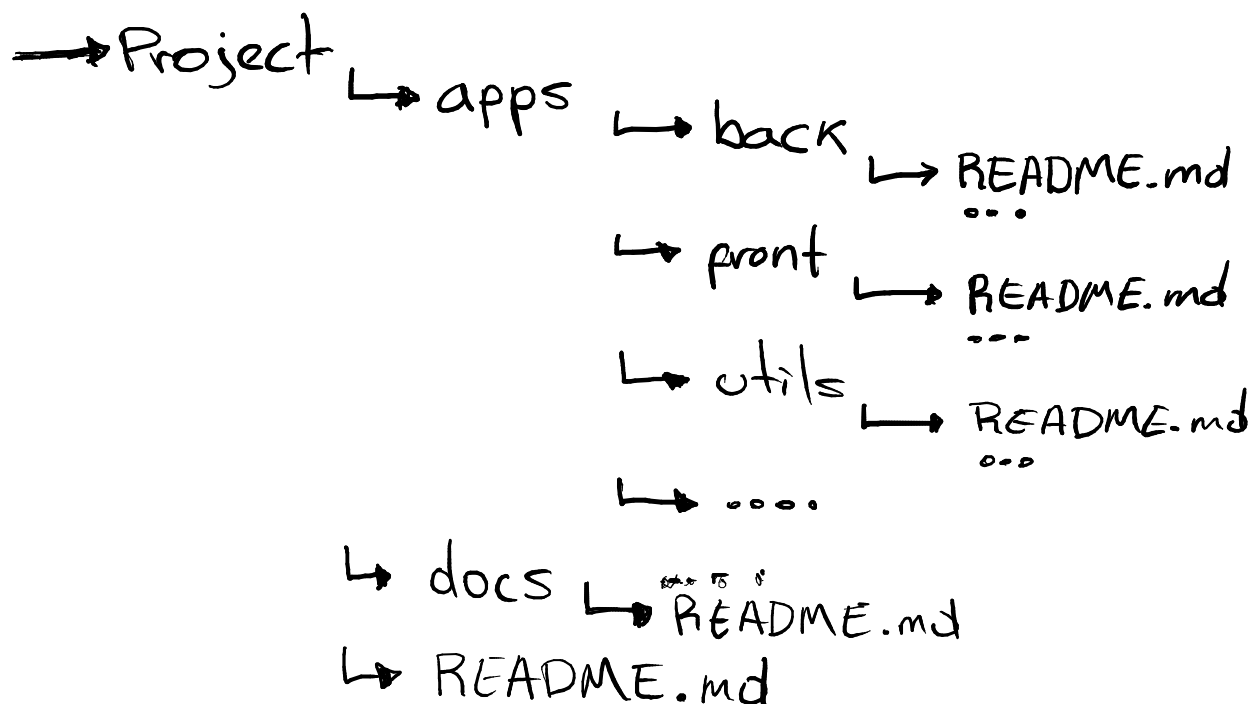 Project
apps
back
README.md
...
front
README.md
...
utils
README.md
...
....
docs
README.md
README.md